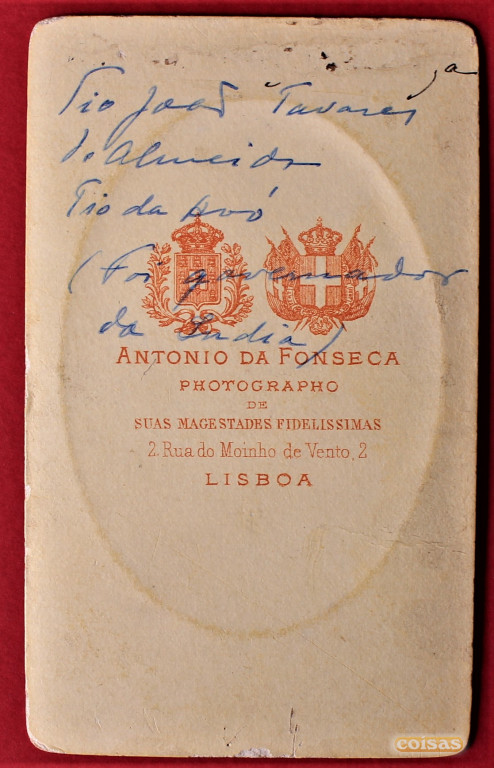 Tio João Tavares
de Almeida
Tio da Avó
(Foi governador
da India)
ANTONIO DA FONSECA
PHOTOGRAPHO
DE
SUAS MAGESTADES FIDELISSIMAS
2. Rua do Moinho de Vento, 2
LISBOA
coisas